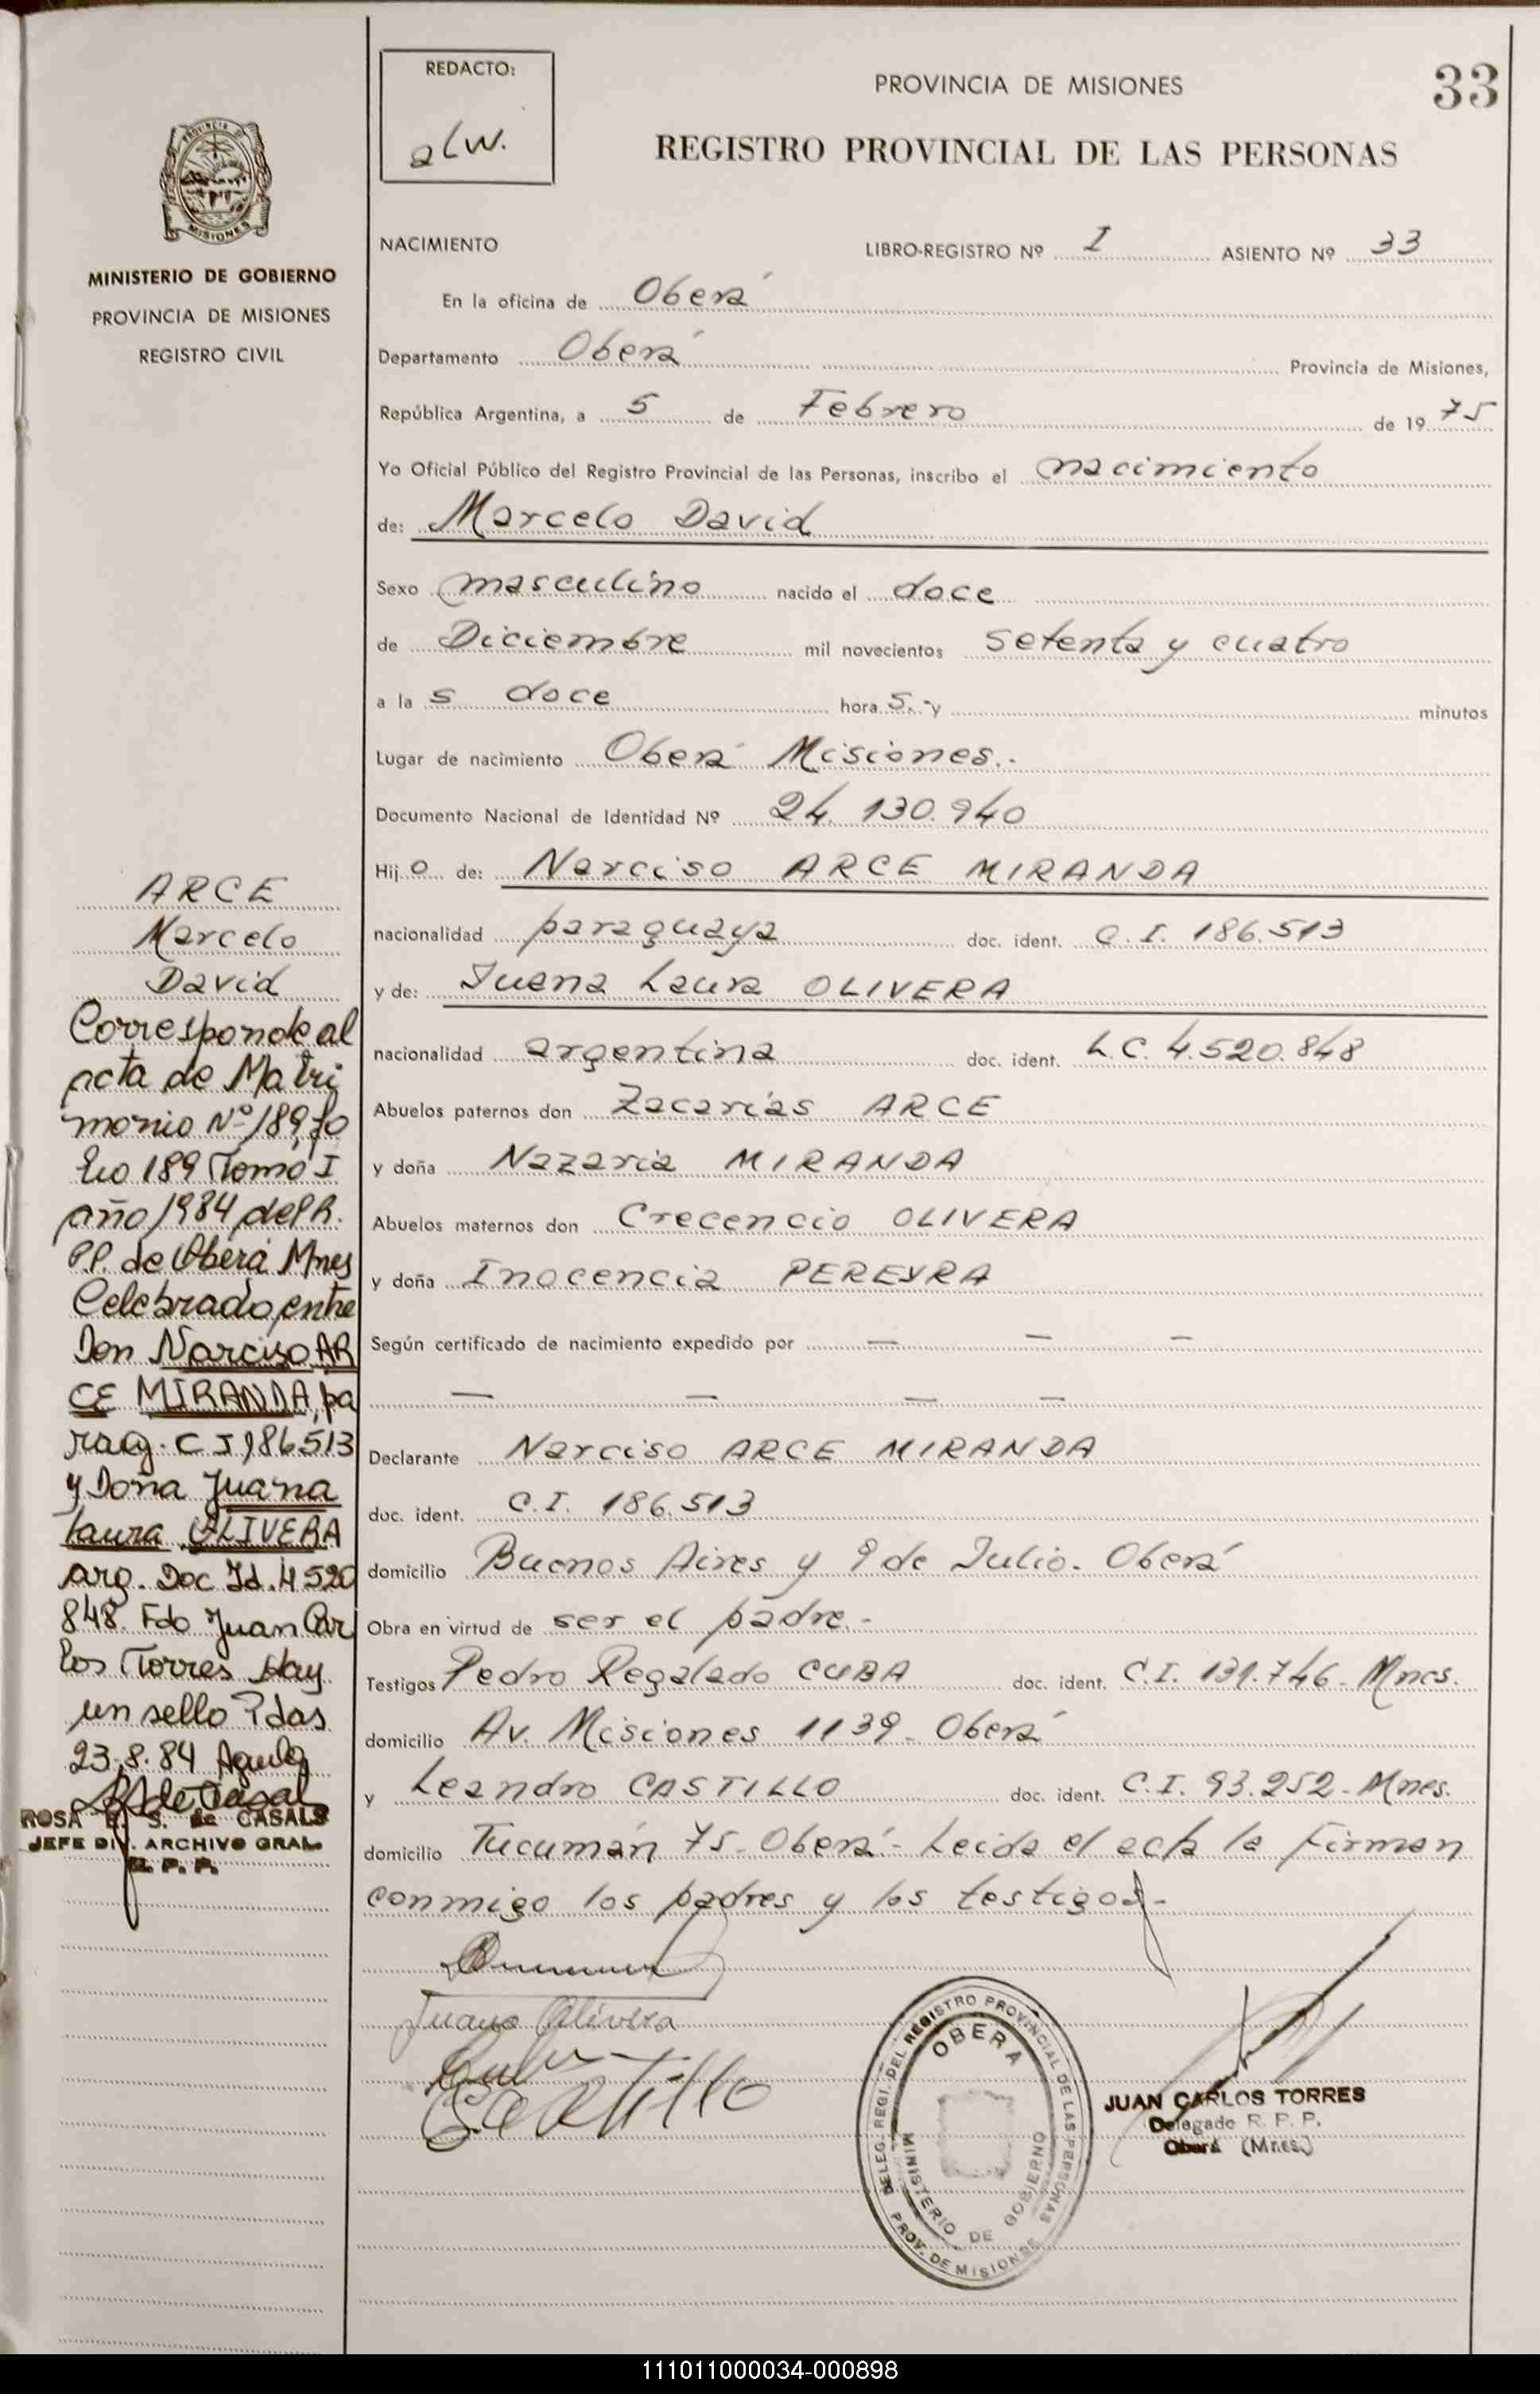 REDACTO:
alw.
PROVINCIA DE MISIONES
33
REGISTRO PROVINCIAL DE LAS PERSONAS
PROVINCIA DE
MISIONES
MINISTERIO DE GOBIERNO
PROVINCIA DE MISIONES
REGISTRO CIVIL
NACIMIENTO LIBRO-REGISTRO Nº I ASIENTO Nº 33
En la oficina de Oberá
Departamento Oberá Provincia de Misiones,
República Argentina, a 5 de Febrero de 1975
Yo Oficial Público del Registro Provincial de las Personas, inscribo el nacimiento
de: Marcelo David
Sexo masculino nacido el doce
de Diciembre mil novecientos setenta y cuatro
a la s doce hora s.- y minutos
Lugar de nacimiento Oberá Misiones.-
Documento Nacional de Identidad Nº 24.130.940
Hijo de: Narciso ARCE MIRANDA
nacionalidad paraguaya doc. ident. C.I. 186.513
y de: Juana Laura OLIVERA
nacionalidad argentina doc. ident. L.C. 4.520.848
Abuelos paternos don Zacarías ARCE
y doña Nazaria MIRANDA
Abuelos maternos don Crecencio OLIVERA
y doña Inocencia PEREYRA
Según certificado de nacimiento expedido por — — —
— — — —
Declarante Narciso ARCE MIRANDA
doc. ident. C.I. 186.513
domicilio Buenos Aires y 9 de Julio. Oberá
Obra en virtud de ser el padre.-
Testigos Pedro Regalado CUBA doc. ident. C.I. 131.746- Mnes.
domicilio Av. Misiones 1139- Oberá
y Leandro CASTILLO doc. ident. C.I. 93.252- Mnes.
domicilio Tucumán 75- Oberá- Leida el acta la firman
conmigo los padres y los testigos-
Juana Olivera
Cuba
Castillo
DELEG. REGI. DEL REGISTRO PROVINCIAL DE LAS PERSONAS
PROV. DE MISIONES
OBERA
MINISTERIO DE GOBIERNO
JUAN CARLOS TORRES
Delegado R. P. P.
Oberá (Mnes.)
ARCE
Marcelo
David
Corresponde al
acta de Matri
monio Nº 189, fo
lio 189 Tomo I
año 1984 del R.
P.P. de Oberá Mnes
Celebrado entre
Don Narciso AR
CE MIRANDA, pa
rag. C I 186513
y Doña Juana
Laura OLIVERA
Arg. Doc Id. 4 520
848. Fdo Juan Car
los Torres Hay
un sello Pdas
23.8.84
ROSA E. S. de CASALS
JEFE DIV. ARCHIVO GRAL.
R. P. P.
111011000034-000898